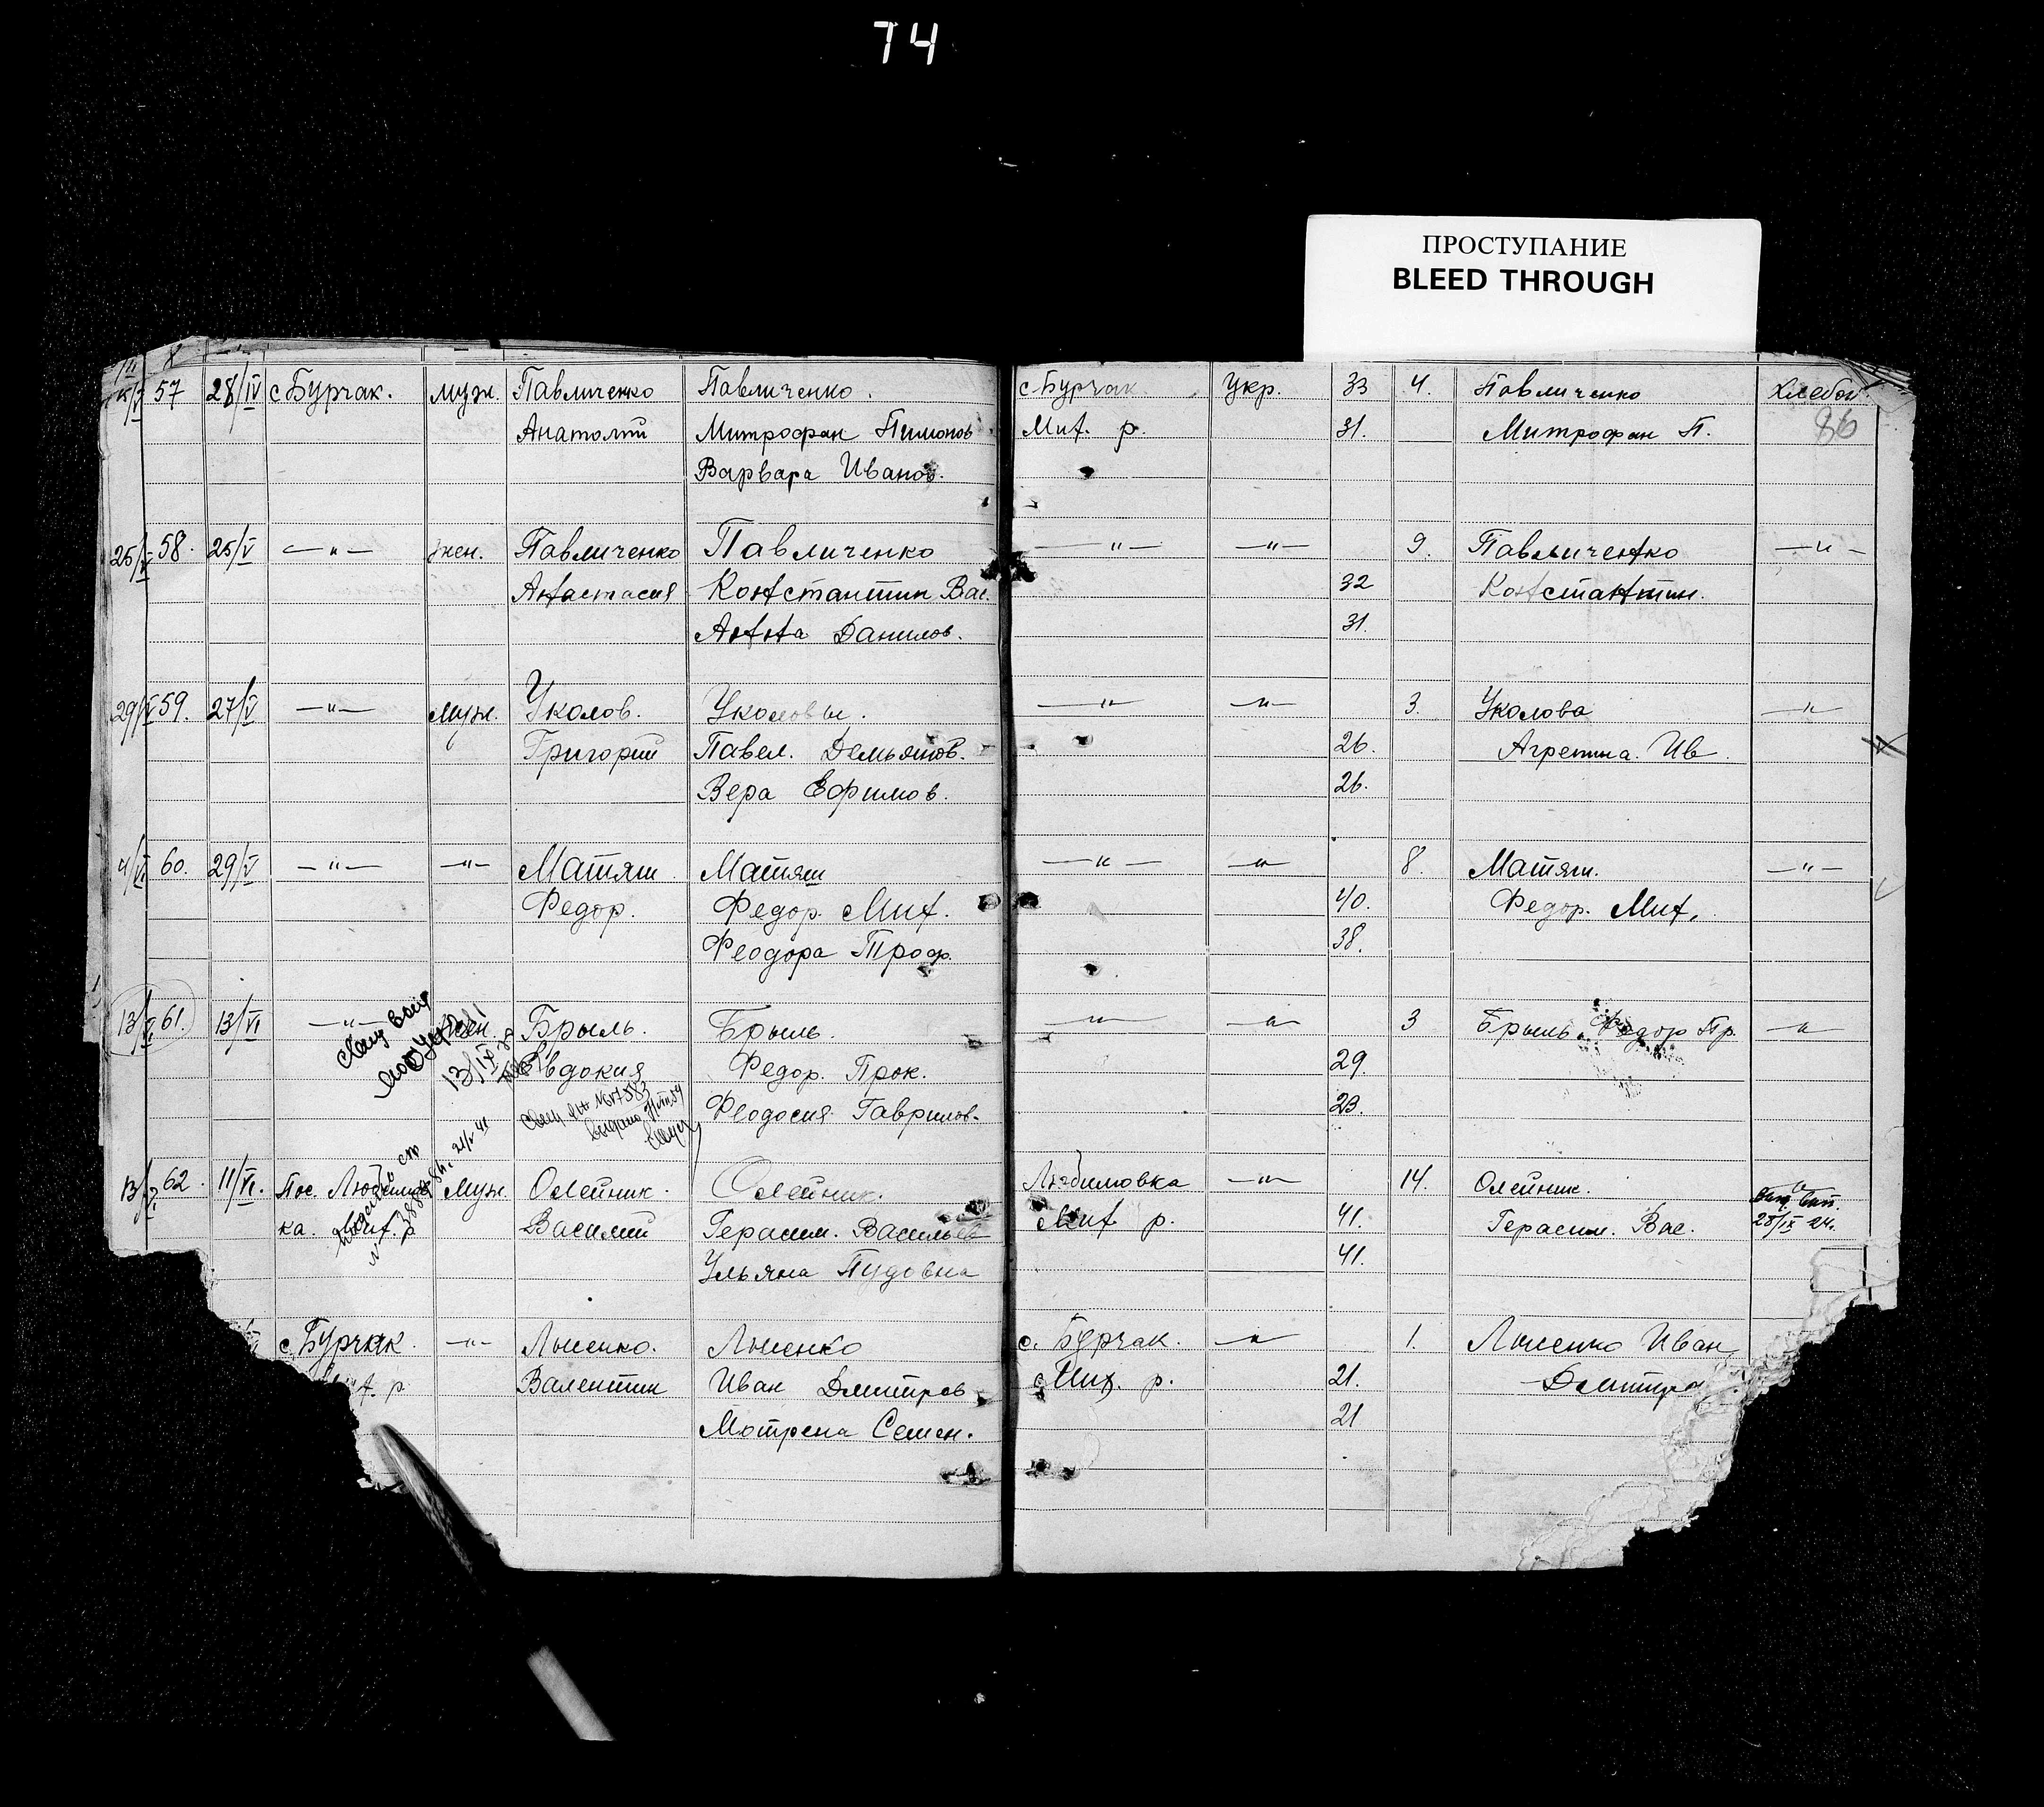 74
ПРОСТУПАНИЕ
BLEED THROUGH
57 28/IV с Бурчак. муж. Павличенко Павличенко. с Бурчак. Укр. 33 4. Павличенко Хлебоп.
Анатолий Митрофан Пимонов Мих. р. 31. Митрофан П. 86
Варвара Иванов.
25/V 58. 25/V —"— жен. Павличенко Павличенко —"— —"— 9. Павличенко —"—
Анастасия Константин Вас. 32 Константин.
Анна Данилов. 31.
29/V 59. 27/V —"— Муж. Уколов. Уколовы. —"— —"— 3. Уколова —"—
Григорий Павел. Демьянов. 26. Агрепина. Ив.
Вера Ефимов. 26.
4/VI 60. 29/V —"— —"— Матяш. Матяш —"— —"— 8. Матяш. —"—
Федор. Федор. Мих. 40. Федор. Мих.
Феодора Троф. 38.
13/VI 61. 13/VI —"— жен. Брыль. Брыль. —"— —"— 3 Брыль Федор Пр. —"—
13/IX
Евдокия Федор. Прок. 29
Феодосия Гаврилов. 23.
21/V 41
13/VI 62. 11/VI. Пос. Любимов Муж. Олейник. Олейник. Любимовка —"— 14. Олейник. —"—
ка. Мих. р Василий Герасим. Васильев Мих р. 41. Герасим. Вас. 28/IX 24.
Ульяна Пудовна 41.
с. Бурчак. —"— Лысенко. Лысенко с. Бурчак. —"— 1. Лысенко Иван
р Валентин Иван Дмитров Мих. р. 21. Дмитр
Мотрена Семен. 21